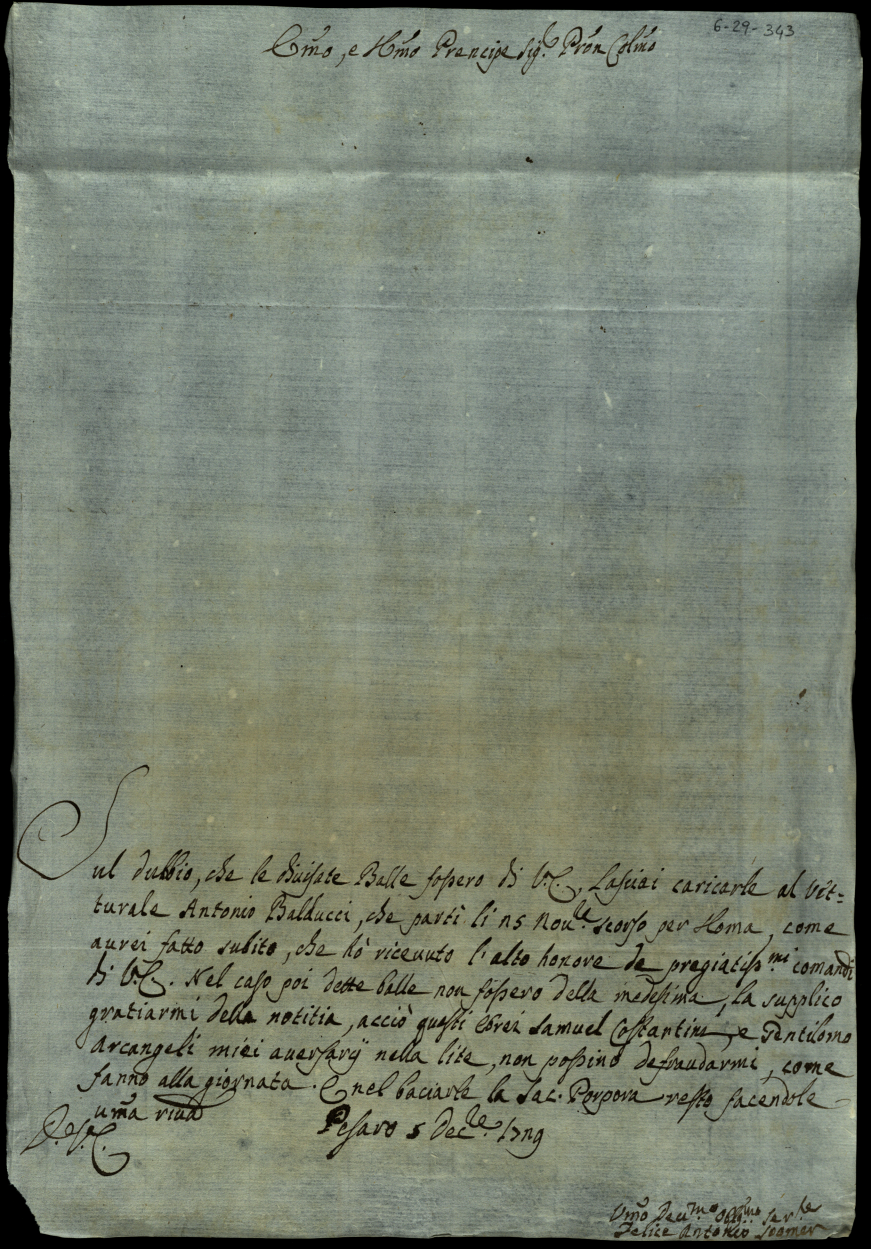 6-29-343
Em̃o, e Rm̃o Prencipe Sig.r Prõn Colm̃o
Sul dubbio, che le divisate Balle fossero di V.E., Lasciai caricarle al Vet=
turale Antonio Balducci, che partì li 25 Nov.e scorso per Roma, come
aurei fatto subito, che hò ricevuto l'alto honore de pregiatiss.mi comandi
di V.E. Nel caso poi dette balle non fossero della medesima, la supplico
gratiarmi della notitia, acciò questi Ebrei Samuel Costantini, e Gentilomo
Arcangeli miei aversarij nella lite, non possino defraudarmi, come
fanno alla giornata. E nel baciarle la Sac. Porpora resto facendole
um̃a riv̄a
D. V. E.
Pesaro 5 Dec.e 1729
Um̃o Deu.mo Obg.mo Ser.re
Felice Antonio